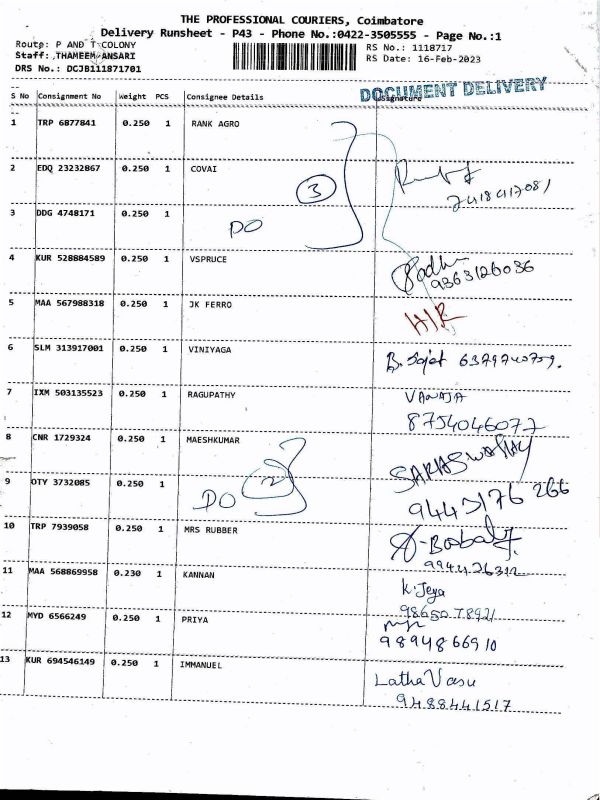 THE PROFESSIONAL COURIERS, Coimbatore
Delivery Runsheet - P43 - Phone No.:0422-3505555 - Page No.:1
Route: P AND T COLONY
RS No.: 1118717
Staff: THAMEEM ANSARI
RS Date: 16-Feb-2023
DRS No.: DCJB111871701
DOCUMENT DELIVERY
S No Consignment No Weight PCS Consignee Details Signature
1 TRP 6877841 0.250 1 RANK AGRO
2 EDQ 23232867 0.250 1 COVAI
3
7418417081
3 DDG 4748171 0.250 1
DO
4 KUR 528884589 0.250 1 VSPRUCE
9363126036
5 MAA 567988318 0.250 1 JK FERRO
6 SLM 313917001 0.250 1 VINIYAGA
7 IXM 503135523 0.250 1 RAGUPATHY VANAJA
8754046077
8 CNR 1729324 0.250 1 MAESHKUMAR
SARASWATHY
9 OTY 3732085 0.250 1
DO 2
9443176 266
10 TRP 7939058 0.250 1 MRS RUBBER
11 MAA 568869958 0.230 1 KANNAN
K. Jeya
9865078921
12 MYD 6566249 0.250 1 PRIYA
9894866910
13 KUR 694546149 0.250 1 IMMANUEL
Latha Vasu
9488441517